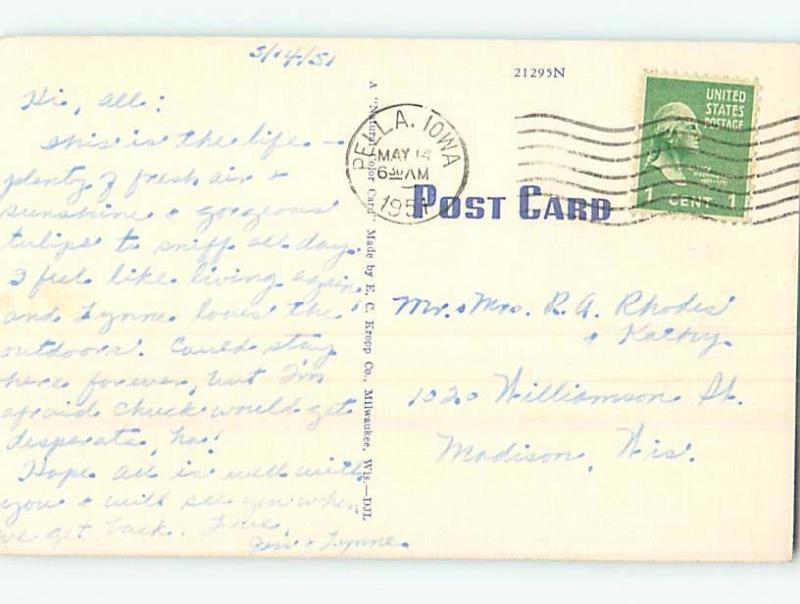 5/14/51
Hi, all:
This is the life -
plenty of fresh air &
sunshine & gorgeous
tulips to sniff all day.
I feel like living again,
and Lynne loves the
outdoors. Could stay
here forever, but I'm
afraid Chuck would get
desperate, ha!
Hope all is well with
you & will see you when
we get back. Love,
& Lynne.
A "Natural Color Card" Made by E. C. Kropp Co., Milwaukee, Wis.—DJL
21295N
PELLA. IOWA
MAY 14
6 30 AM
1951
POST CARD
UNITED
STATES
POSTAGE
1 CENT 1
Mr. & Mrs. R. A. Rhodes
& Kathy.
1020 Williamson St.
Madison, Wis.